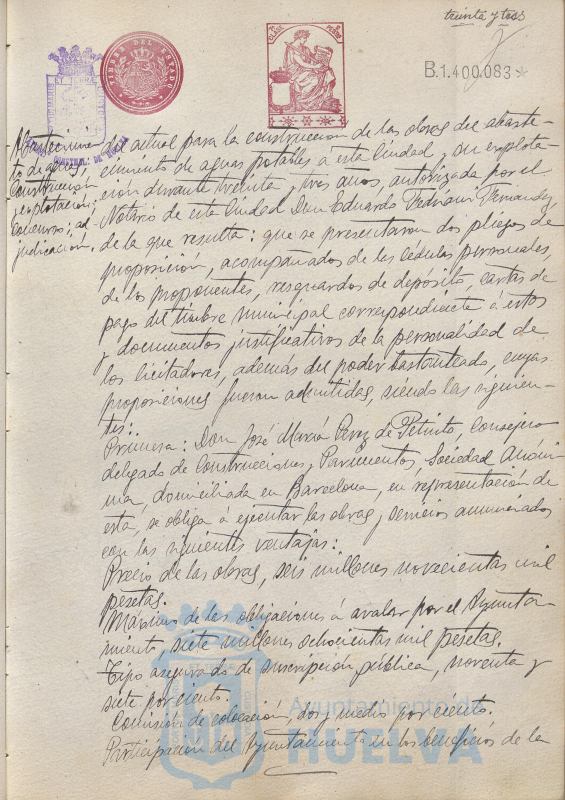 treinta y tres
TIMBRE DEL ESTADO
B.1.400.083*
Abastecimien-
to de aguas,
Construcción
y explotación:
Concurso; ad-
judicación.
del actual para la construcción de las obras del abaste-
cimiento de aguas potables a esta Ciudad, y su explota-
ción durante treinta y tres años, autorizada por el
Notario de esta Ciudad Don Eduardo Fedriani Fernandez
de la que resulta: que se presentaron dos pliegos de
proposición, acompañados de las cédulas personales,
de los proponentes, resguardos de depósito, cartas de
pago del timbre municipal correspondiente á estos
y documentos justificativos de la personalidad de
los licitadores, además del poder bastanteado, cuyas
proposiciones fueron admitidas, siendo las siguien-
tes:
Primera: Don José María Perez de Petinto, Consejero
delegado de Construcciones y Pavimentos, Sociedad Anóni-
ma, domiciliada en Barcelona, en representación de
esta, se obliga á ejecutar las obras y servicios anunciados
con las siguientes ventajas:
Precio de las obras, seis millones novecientas mil
pesetas.
Máximo de las obligaciones á avalar por el Ayunta-
miento, siete millones ochocientas mil pesetas.
Tipo asegurado de suscripción pública, noventa y
siete por ciento.
Comisión de colocación, dos y medio por ciento.
Participación del Ayuntamiento en los beneficios de la
Ayuntamiento de
HUELVA